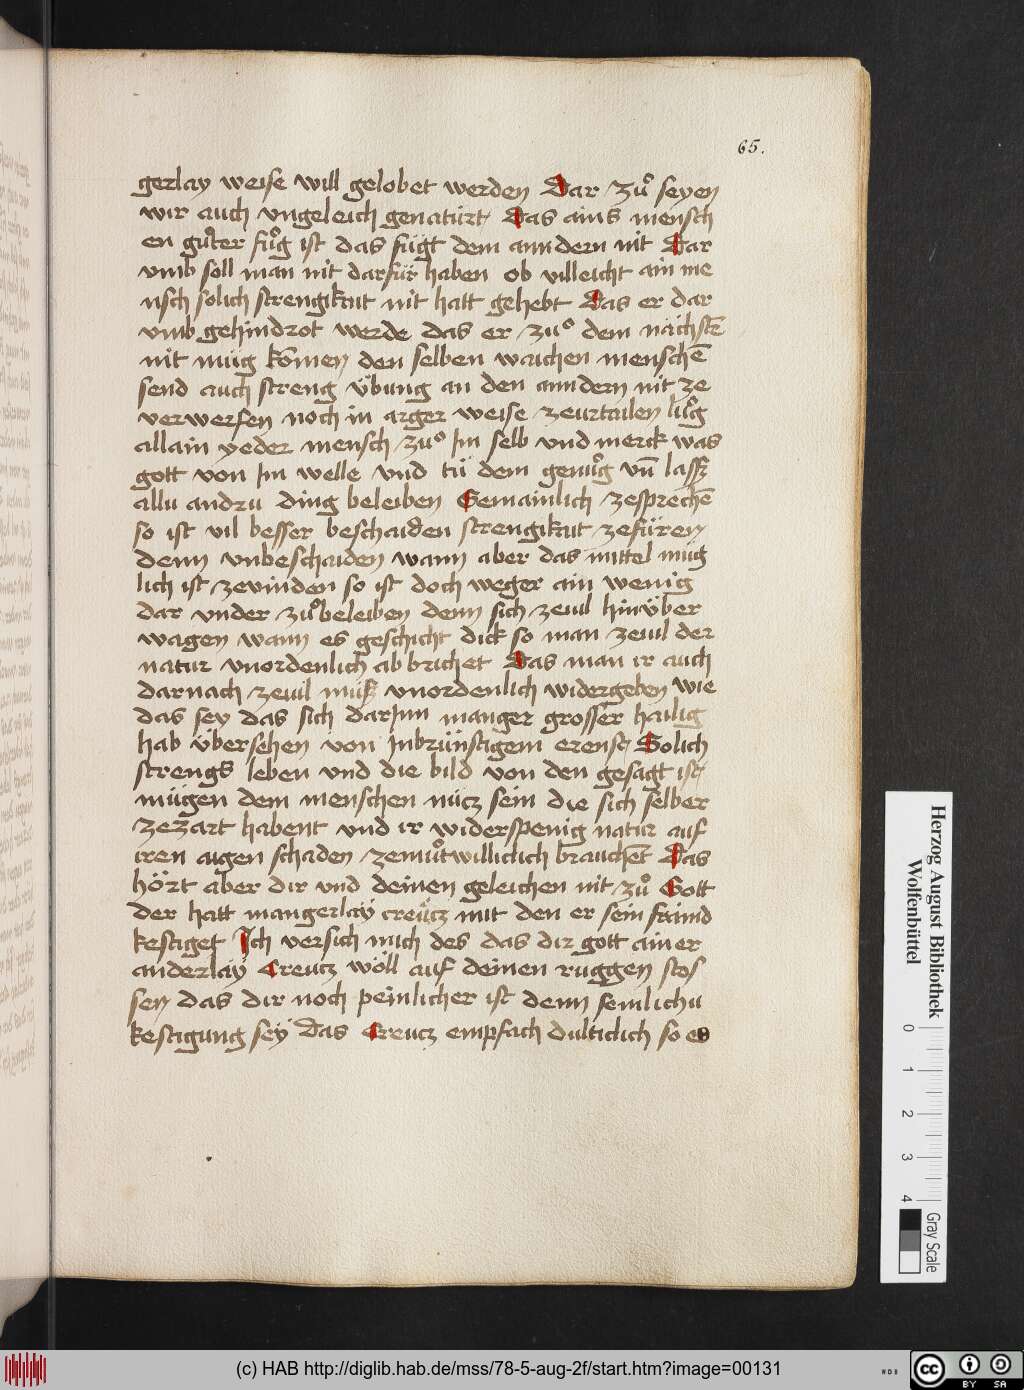 65.
gerlay weise will gelobet werden Dar zuͦ seyen
wir auch vngeleich genatürt Das ains mensch
en guͦter fuͦg ist das fügt dem anndern nit Dar
vmb soll man nit darfür haben ob villeicht ain me
nsch solich strengikait nit hatt gehebt Das er dar
vmb gehindrot werde das er zuͦ dem nächstē
nit müg komen den selben waichen menschē
send auch streng übung an den anndern nit ze
verwerfen noch in arger weise zeurtailen luͦg
allain yeder mensch zuͦ Im selb vnd merck was
gott von Im welle vnd tü dem genuͦg vn̄ lassz
allu andru ding beleiben Gemainlich zesprechē
so ist vil besser beschaiden strengikait zefüren
denn vnbeschaiden wann aber das mittel müg
lich ist zevinden so ist doch weger ain wenig
dar vnder zuͦbeleiben denn sich zeuil hinüber
wagen wann es geschicht dick so man zeuil der
natur vnordenlich abbrichet Das man ir auch
darnach zeuil muͦsz vnordenlich widergeben wie
das sey das sich darInn manger grosser hailig
hab übersehen von Inbrünstigem erenst Solich
strengs leben vnd die bild von den gesagt ist
mügen dem menschen nücz sein die sich selber
zezart habent vnd ir widerspenig natur auf
iren aigen schaden zemuͦtwilliclich brauchēt Das
hört aber dir vnd deinen geleichen nit zuͦ Gott
der hatt mangerlay creücz mit den er sein fräind
kestiget Ich versich mich des das dir gott ainer
anderlay Creucz wöll auf deinen ruggen stos
sen das dir noch peinlicher ist denn semlichu
kestigung sey Das Creucz empfach dulticlich so es
Herzog August Bibliothek
Wolfenbüttel
0 1 2 3 4
Gray Scale
(c) HAB http://diglib.hab.de/mss/78-5-aug-2f/start.htm?image=00131
WDB
cc BY SA